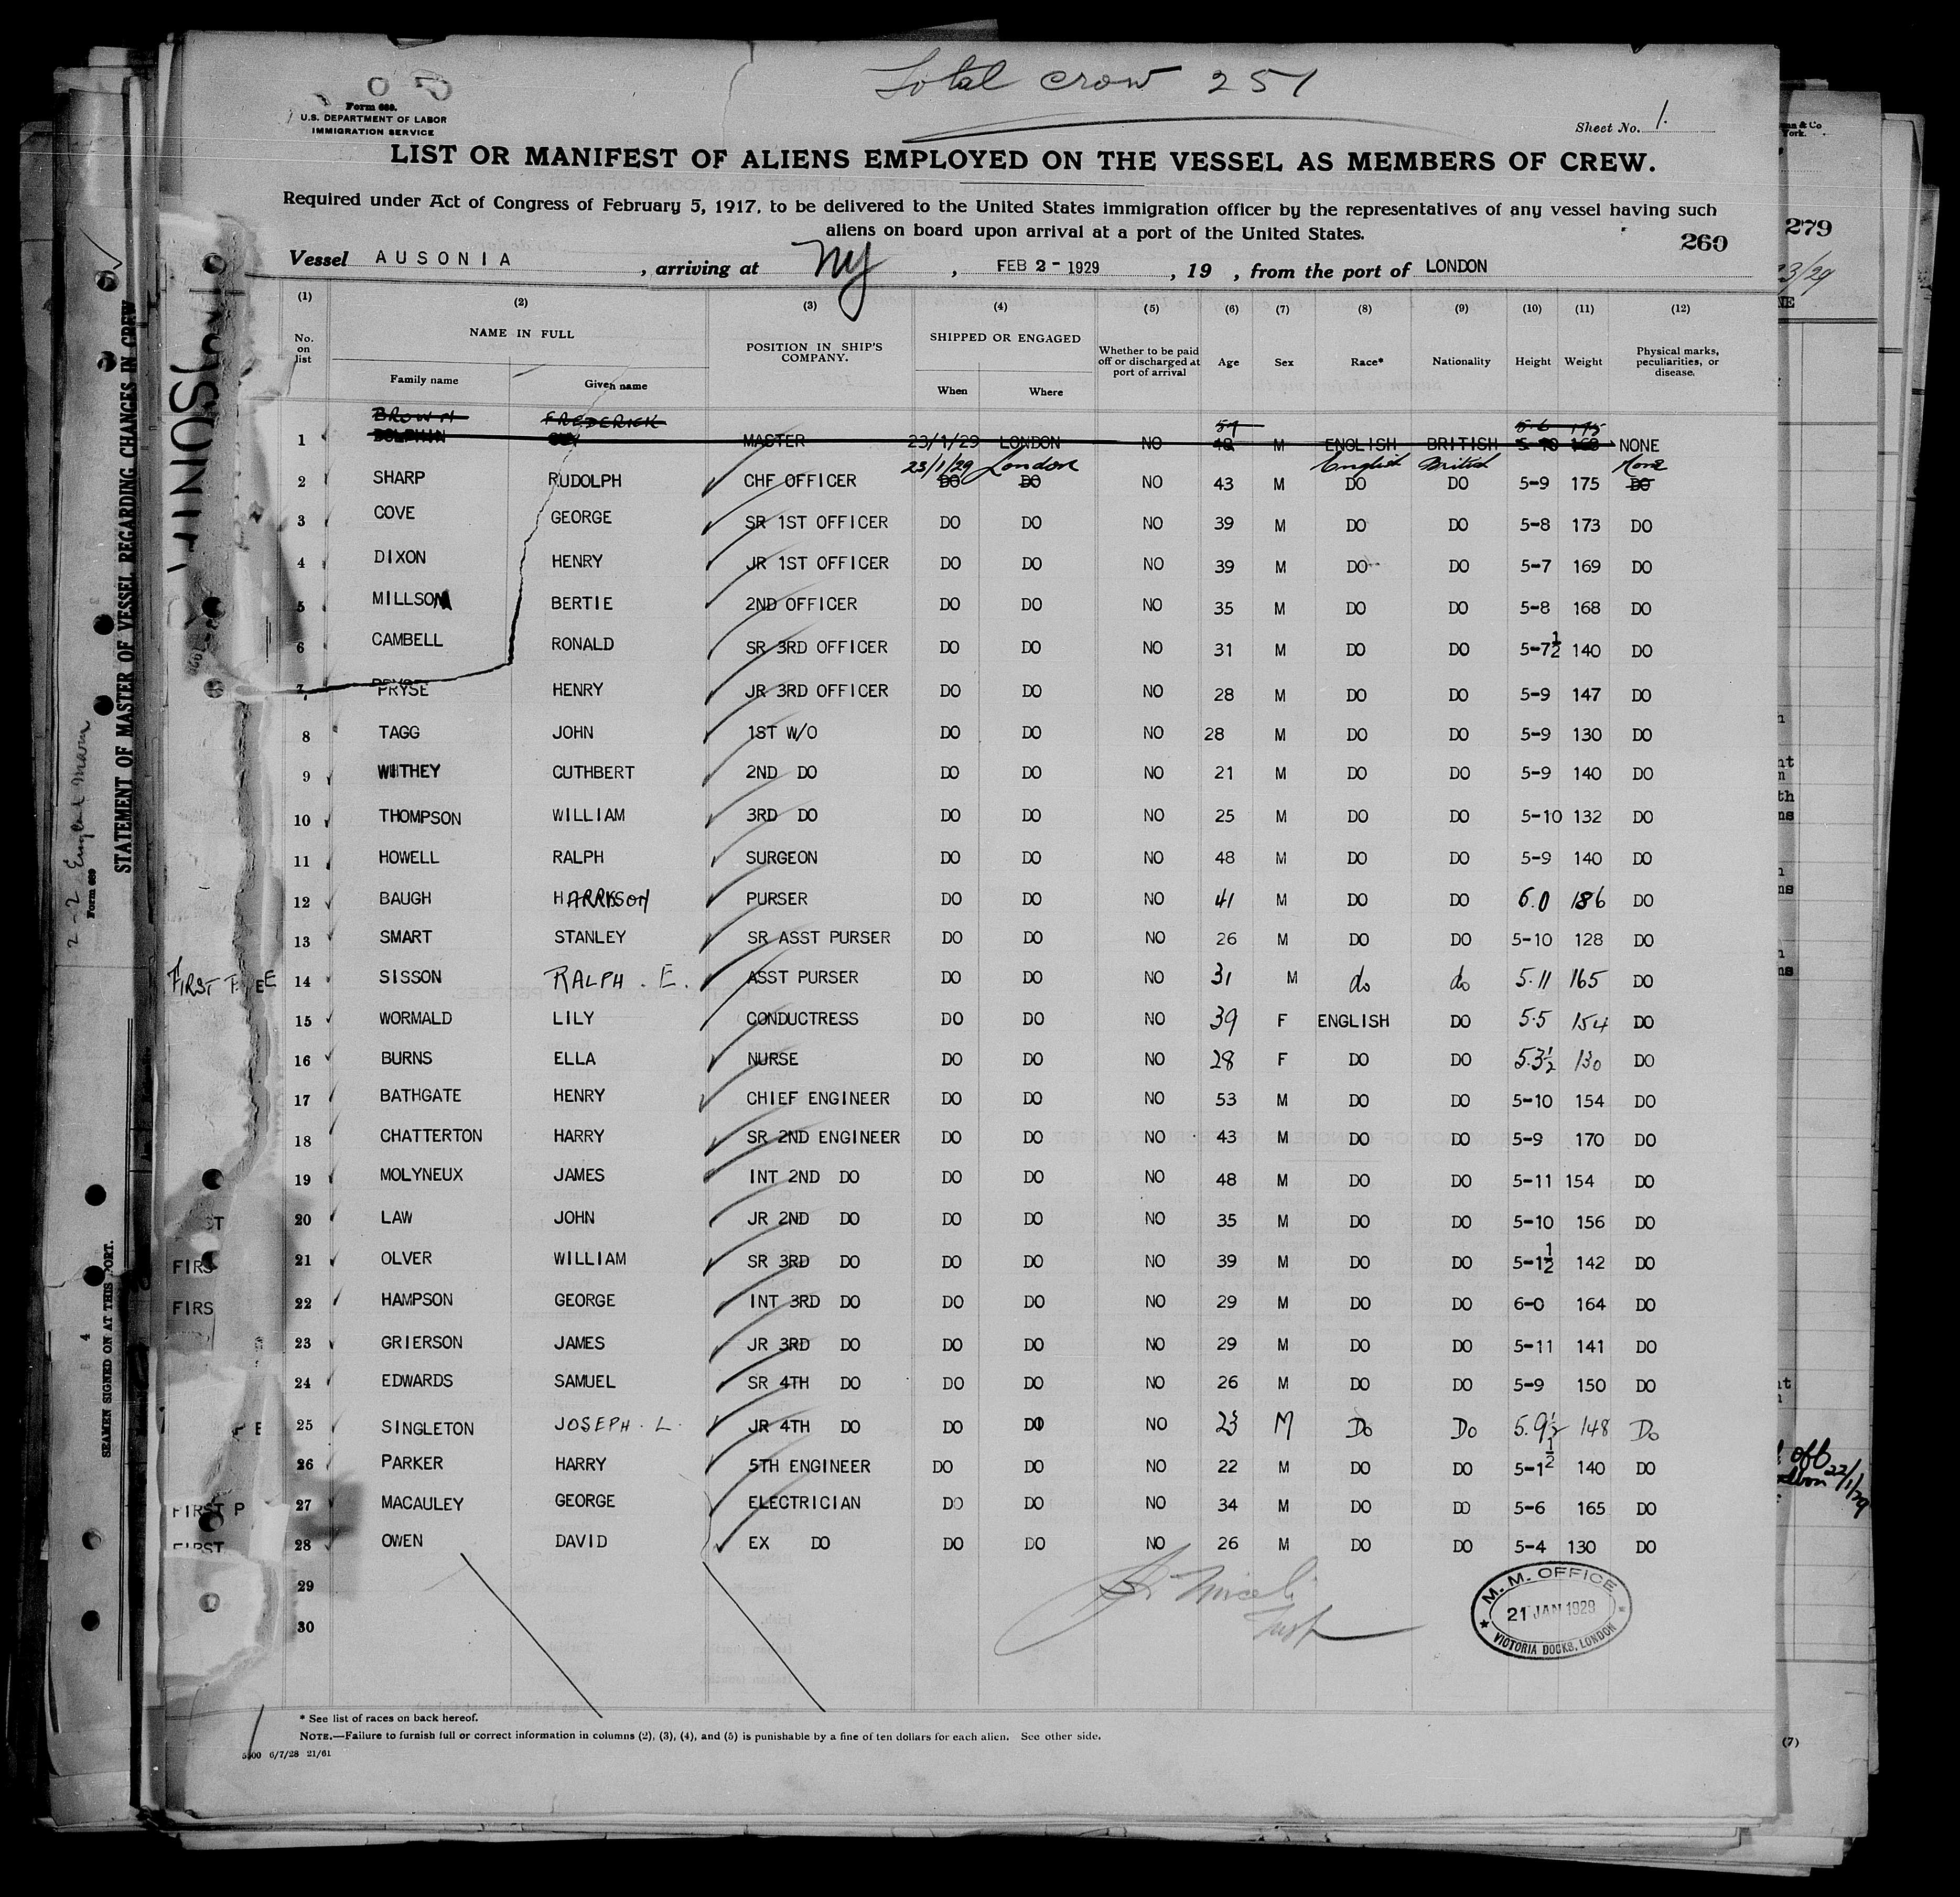 Total crow 251
Form 689.
U.S. DEPARTMENT OF LABOR
IMMIGRATION SERVICE
Sheet No. 1.
LIST OR MANIFEST OF ALIENS EMPLOYED ON THE VESSEL AS MEMBERS OF CREW.
Required under Act of Congress of February 5, 1917, to be delivered to the United States immigration officer by the representatives of any vessel having such
aliens on board upon arrival at a port of the United States.
260
Vessel AUSONIA, arriving at NY, FEB 2-1929, 19 , from the port of LONDON
(1) (2) (3) (4) (5) (6) (7) (8) (9) (10) (11) (12)
No. on list NAME IN FULL Family name Given name POSITION IN SHIP'S COMPANY. SHIPPED OR ENGAGED When Where Whether to be paid off or discharged at port of arrival Age Sex Race* Nationality Height Weight Physical marks, peculiarities, or disease.
BROWN FREDERICK 57 5-6 175
1 DOLPHIN GUY MASTER 23/1/29 LONDON NO 48 M ENGLISH BRITISH 5-10 NONE
23/1/29 London English British None
2 SHARP RUDOLPH CHF OFFICER DO DO NO 43 M DO DO 5-9 175 DO
3 COVE GEORGE SR 1ST OFFICER DO DO NO 39 M DO DO 5-8 173 DO
4 DIXON HENRY JR 1ST OFFICER DO DO NO 39 M DO DO 5-7 169 DO
5 MILLSON BERTIE 2ND OFFICER DO DO NO 35 M DO DO 5-8 168 DO
6 CAMBELL RONALD SR 3RD OFFICER DO DO NO 31 M DO DO 5-7½ 140 DO
7 PRYSE HENRY JR 3RD OFFICER DO DO NO 28 M DO DO 5-9 147 DO
8 TAGG JOHN 1ST W/O DO DO NO 28 M DO DO 5-9 130 DO
9 WITHEY CUTHBERT 2ND DO DO DO NO 21 M DO DO 5-9 140 DO
10 THOMPSON WILLIAM 3RD DO DO DO NO 25 M DO DO 5-10 132 DO
11 HOWELL RALPH SURGEON DO DO NO 48 M DO DO 5-9 140 DO
12 BAUGH HARRISON PURSER DO DO NO 41 M DO DO 6.0 186 DO
13 SMART STANLEY SR ASST PURSER DO DO NO 26 M DO DO 5-10 128 DO
14 SISSON RALPH . E. ASST PURSER DO DO NO 31 M do do 5.11 165 DO
15 WORMALD LILY CONDUCTRESS DO DO NO 39 F ENGLISH DO 5.5 154 DO
16 BURNS ELLA NURSE DO DO NO 28 F DO DO 5.3½ 130 DO
17 BATHGATE HENRY CHIEF ENGINEER DO DO NO 53 M DO DO 5-10 154 DO
18 CHATTERTON HARRY SR 2ND ENGINEER DO DO NO 43 M DO DO 5-9 170 DO
19 MOLYNEUX JAMES INT 2ND DO DO DO NO 48 M DO DO 5-11 154 DO
20 LAW JOHN JR 2ND DO DO DO NO 35 M DO DO 5-10 156 DO
21 OLVER WILLIAM SR 3RD DO DO DO NO 39 M DO DO 5-1½ 142 DO
22 HAMPSON GEORGE INT 3RD DO DO DO NO 29 M DO DO 6-0 164 DO
23 GRIERSON JAMES JR 3RD DO DO DO NO 29 M DO DO 5-11 141 DO
24 EDWARDS SAMUEL SR 4TH DO DO DO NO 26 M DO DO 5-9 150 DO
25 SINGLETON JOSEPH . L. JR 4TH DO DO DO NO 23 M Do Do 5.9½ 148 Do
26 PARKER HARRY 5TH ENGINEER DO DO NO 22 M DO DO 5-1½ 140 DO
27 MACAULEY GEORGE ELECTRICIAN DO DO NO 34 M DO DO 5-6 165 DO
28 OWEN DAVID EX DO DO DO NO 26 M DO DO 5-4 130 DO
29
30
M. M. OFFICE
21 JAN 1929
VICTORIA DOCKS, LONDON
* See list of races on back hereof.
NOTE.—Failure to furnish full or correct information in columns (2), (3), (4), and (5) is punishable by a fine of ten dollars for each alien. See other side.
5500 6/7/28 21/61
STATEMENT OF MASTER OF VESSEL REGARDING CHANGES IN CREW
Form 689
SEAMEN SIGNED ON AT THIS PORT.
4
FIRST
FIRS
FIRS
FIRST P
FIRST
279
3/29
22/1/29
(7)